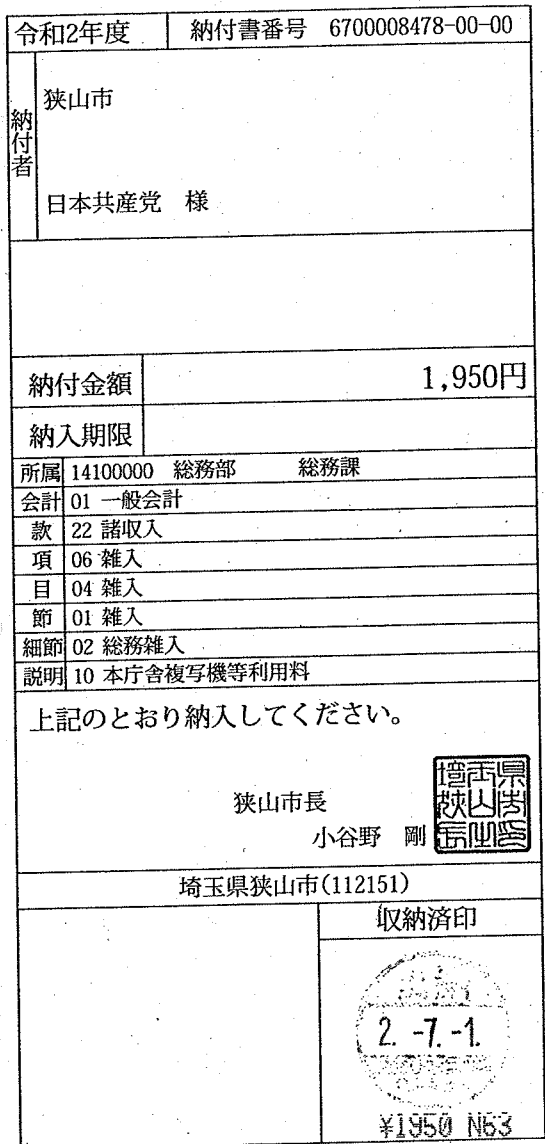 令和2年度 納付書番号 6700008478-00-00
納付者
狭山市
日本共産党 様
納付金額 1,950円
納入期限
所属 14100000 総務部 総務課
会計 01 一般会計
款 22 諸収入
項 06 雑入
目 04 雑入
節 01 雑入
細節 02 総務雑入
説明 10 本庁舎複写機等利用料
上記のとおり納入してください。
狭山市長
小谷野 剛
埼玉県狭山市(112151)
収納済印
2. -7. -1.
¥1950 N63